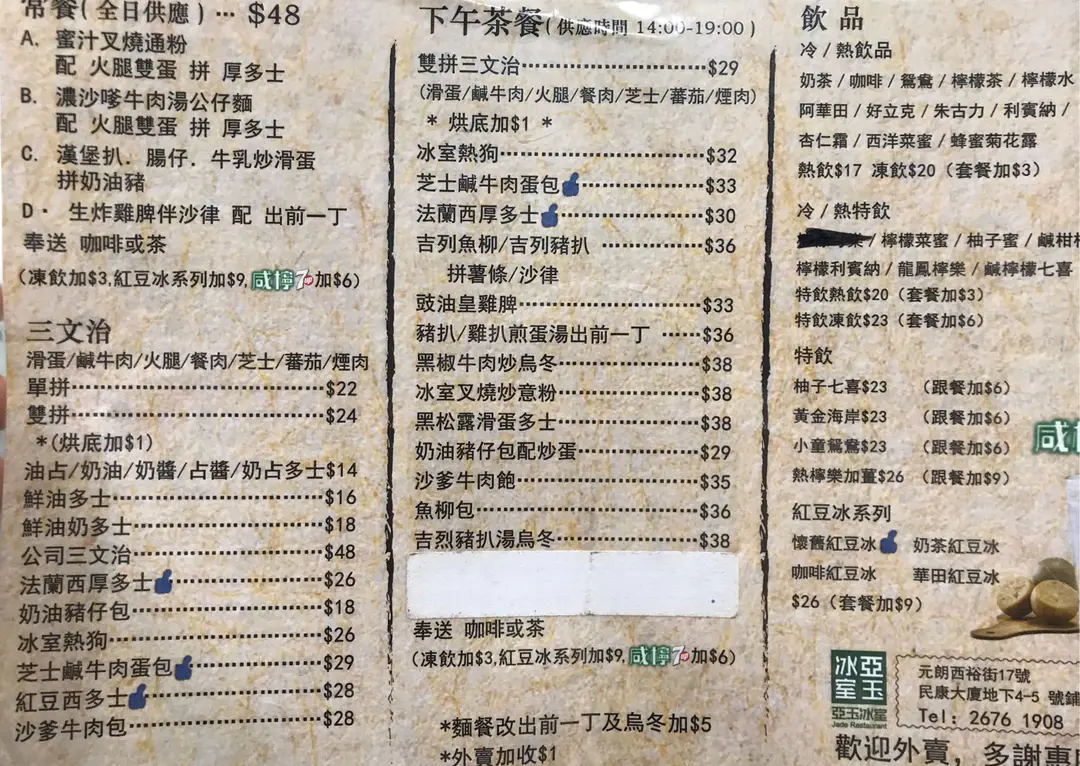 常餐(全日供應)… $48
A. 蜜汁叉燒通粉
配 火腿雙蛋 拼 厚多士
B. 濃沙嗲牛肉湯公仔麵
配 火腿雙蛋 拼 厚多士
C. 漢堡扒．腸仔．牛乳炒滑蛋
拼奶油豬
D· 生炸雞脾伴沙律 配 出前一丁
奉送 咖啡或茶
(凍飲加$3,紅豆冰系列加$9,咸檸7加$6)
三文治
滑蛋/鹹牛肉/火腿/餐肉/芝士/蕃茄/煙肉
單拼$22
雙拼$24
*(烘底加$1)
油占/奶油/奶醬/占醬/奶占多士$14
鮮油多士$16
鮮油奶多士$18
公司三文治$48
法蘭西厚多士$26
奶油豬仔包$18
冰室熱狗$26
芝士鹹牛肉蛋包$29
紅豆西多士$28
沙爹牛肉包$28
下午茶餐(供應時間 14:00-19:00)
雙拼三文治$29
(滑蛋/鹹牛肉/火腿/餐肉/芝士/蕃茄/煙肉)
* 烘底加$1 *
冰室熱狗$32
芝士鹹牛肉蛋包$33
法蘭西厚多士$30
吉列魚柳/吉列豬扒$36
拼薯條/沙律
豉油皇雞脾$33
豬扒/雞扒煎蛋湯出前一丁$36
黑椒牛肉炒烏冬$38
冰室叉燒炒意粉$38
黑松露滑蛋多士$38
奶油豬仔包配炒蛋$29
沙爹牛肉飽$35
魚柳包$36
吉烈豬扒湯烏冬$38
奉送 咖啡或茶
(凍飲加$3,紅豆冰系列加$9,咸檸7加$6)
*麵餐改出前一丁及烏冬加$5
*外賣加收$1
飲品
冷/熱飲品
奶茶/咖啡/鴛鴦/檸檬茶/檸檬水
阿華田/好立克/朱古力/利賓納/
杏仁霜/西洋菜蜜/蜂蜜菊花露
熱飲$17 凍飲$20(套餐加$3)
冷/熱特飲
/檸檬菜蜜/柚子蜜/鹹柑桔
檸檬利賓納/龍鳳檸樂/鹹檸檬七喜
特飲熱飲$20(套餐加$3)
特飲凍飲$23(套餐加$6)
特飲
柚子七喜$23 (跟餐加$6)
黃金海岸$23 (跟餐加$6)
小童鴛鴦$23 (跟餐加$6)
熱檸樂加薑$26 (跟餐加$9)
咸
紅豆冰系列
懷舊紅豆冰 奶茶紅豆冰
咖啡紅豆冰 華田紅豆冰
$26(套餐加$9)
亞玉冰室
亞玉冰室
Jade Restaurant
元朗西裕街17號
民康大廈地下4-5 號鋪
Tel: 2676 1908
歡迎外賣，多謝惠